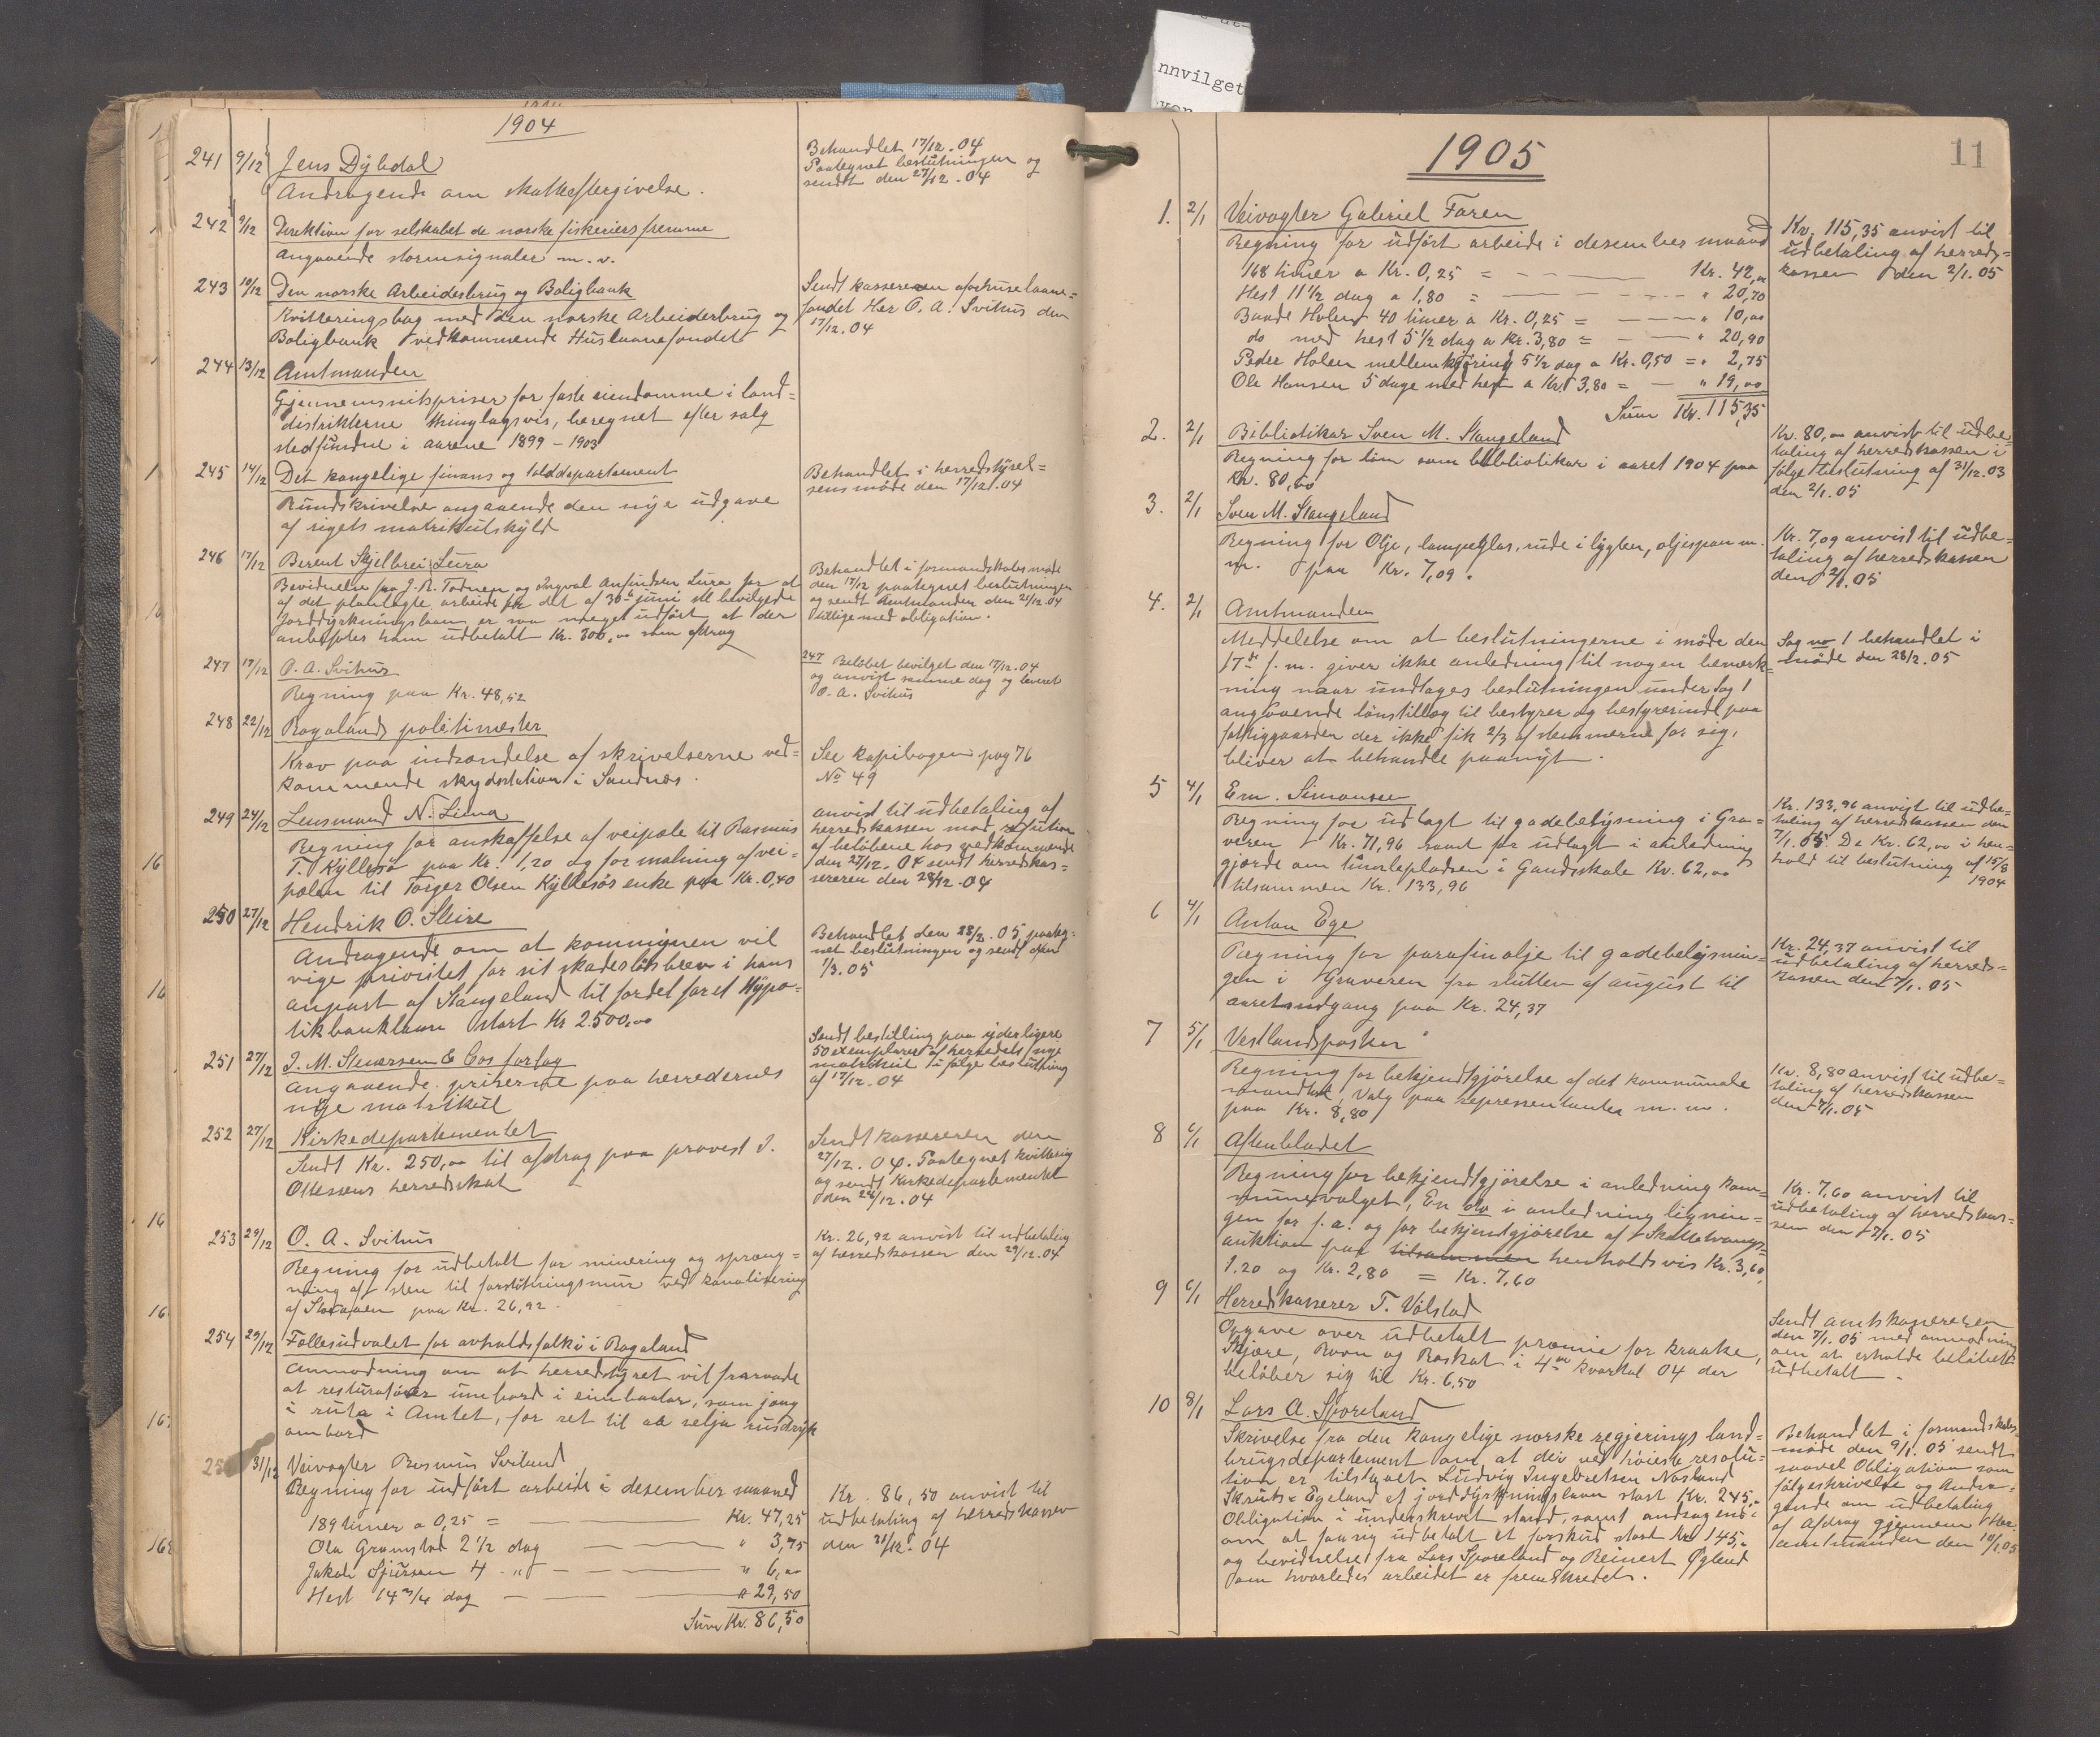 1904
241 9/12 Jens Dybdal
Andragende om skatteftergivelse.
Behandlet 17/12.04
Paategnet beslutningen og
sendt den 27/12.04
242 9/12 Direktion for selskabet de norske fiskeriers fremme
Angaaende stormsignaler m. v.
243 10/12 Den norske Arbeiderbrug og Boligbank
Kvitteringsbog med den norske Arbeiderbrug og
Boligbank vedkommende Huslaanefondet
Sendt kassereren af huselaane=
fondet Her O. A. Svihus den
17/12.04
244 13/12 Amtmanden
Gjennemsnitspriser for faste eiendomme i land=
distrikterne thinglagsvis, beregnet efter salg
stedfundne i aarene 1899 - 1903
245 14/12 Det kongelige finans og tolddepartement
Rundskrivelse angaaende den nye udgave
af rigets matrikulskyld
Behandlet i herredstyrel=
sens möde den 17/12.04
246 17/12 Berent Skjelbrei Lura
Bevidnelse fra J. R. Todnem og Ingval Anfindsen Lura for at
af det planlagte arbeide for det af 30te juni bevilgede
jorddyrkningslaan er saa meget udfört at der
anbefales ham udbetalt Kr. 300,00 som afdrag
Behandlet i formandskabs möde
den 17/12 paategnet beslutningen
og sendt Amtmanden den 21/12.04
tillige med obligation.
247 17/12 O. A. Svihus
Regning paa Kr. 48,52
247 Belöbet bevilget den 17/12.04
og anvist samme dag og leveret
O. A. Svihus
248 22/12 Rogalands politimester
Krav paa indsendelse af skrivelserne ved=
kommende skydsstation i Sandnes.
See kopibogen pag 76
No 49
249 24/12 Lensmand N. Lima
Regning for anskaffelse af veipæle til Rasmus
T. Kyllesö paa Kr. 1,20 og for maling af vei=
pælen til Torger Olsen Kyllesös enke paa Kr. 0,40
anvist til udbetaling af
herredskassen mod refution
af belöbene hos vedkommende
den 27/12.04 sendt herredskas=
sereren den 28/12.04
250 27/12 Hendrik O. Skeie
Andragende om at kommunen vil
vige prioritet for sit skadeslösbrev i hans
anpart af Stangeland til fordel for et Hypo=
tikbanklaan stort Kr 2500,00
Behandlet den 28/2.05 paateg=
net beslutningen og sendt den
1/3.05
251 27/12 J. M. Stenersen & Cos forlag
angaaende priserne paa herredernes
nye matrikul
Sendt bestilling paa yderligere
50 exemplarer af herredets nye
matrikul i fölge beslutning
af 17/12.04
252 27/12 Kirkedepartementet
Sendt Kr. 250,00 til afdrag paa provest J.
Ollessens herredsskat
Sendt kassereren den
27/12.04. Paategnet kvittering
og sendt Kirkedepartementet
den 28/12.04
253 29/12 O. A. Svihus
Regning for udbetalt for minering og spræng=
ning af sten til forstötningsmur ved kanalisering
af Storaaen paa Kr. 26,92.
Kr. 26,92 anvist til udbetaling
af herredskassen den 29/12.04
254 29/12 Fællesudvalet for avholdsfolki i Rogaland
Anmodning om at herredstyret vil fraraade
at resturatörer umbord i eimbaatar, som gang
i ruta i Amtet, for ret til aa selja rusdryk
ombord
31/12 Veivogter Rasmus Sviland
Regning for udfört arbeide i desember maaned
189 timer a 0,25 = Kr. 47,25
Ola Gramstad 2 1/2 dag " 3,75
Jakob Sjursen 4 " " 6,00
Hest 14 3/4 dag " 29,50
Sum Kr. 86,50
Kr. 86,50 anvist til
udbetaling af herredskassen
den 31/12.04
nnvilget
11
1905
1. 2/1 Veivogter Gabriel Faren
Regning for udfört arbeide i desember maaned
168 timer a Kr. 0,25 = Kr. 42,00
Hest 11 1/2 dag a 1,80 = " 20,70
Baade Holen 40 timer a Kr. 0,25 = " 10,00
do med hest 5 1/2 dag a Kr. 3,80 = " 20,90
Peder Holen mellemkjöring 5 1/2 dag a Kr. 0,50 = " 2,75
Ole Hansen 5 dage med hest a Kr. 3,80 = " 19,00
Sum Kr. 115,35
Kr. 115,35 anvist til
udbetaling af herreds=
kassen den 2/1.05
2. 2/1 Bibliotikar Sven M. Stangeland
Regning for lön som bibliotikar i aaret 1904 paa
Kr. 80,00
Kr. 80,00 anvist til udbe=
taling af herredskassen i
fölge beslutning af 31/12.03
den 2/1.05
3. 2/1 Sven M. Stangeland
Regning for Olje, lampeglas, rude i lygten, oljespan m.
m. paa Kr. 7,09.
Kr. 7,09 anvist til udbe=
taling af herredskassen
den 2/1.05
4. 2/1 Amtmanden
Meddelelse om at beslutningerne i möde den
17de f. m. giver ikke anledning til nogen bemærk=
ning naar undtages beslutningen under Sag 1
angaaende lönstillæg til bestyrer og bestyrerinde paa
fattiggaarden der ikke fik 2/3 af stemmerne for sig,
bliver at behandle paanyt.
Sag no 1 behandlet i
möde den 28/2.05
5 4/1 Em. Simonsen
Regning for udlagt til gadebelysning i Gra=
veren Kr. 71,96 samt for udlagt i anledning
gjærde om turnlepladsen i Gandsskole Kr. 62,00
tilsammen Kr. 133,96
Kr. 133,96 anvist til udbe=
taling af herredskassen den
7/1.05. De Kr. 62,00 i hen=
hold til beslutning af 15/8
1904
6 4/1 Anton Ege
Regning for parafinolje til gadebelysnin=
gen i Graveren fra slutten af august til
aaretsudgang paa Kr. 24,37
Kr. 24,37 anvist til
udbetaling af herreds=
kassen den 7/1.05
7 5/1 Vestlandsposten
Regning for bekjendtgjörelse af det kommunale
mandtal, Valg paa representanter m. m.
paa Kr. 8,80
Kr. 8,80 anvist til udbe=
taling af herredskassen
den 7/1.05
8 6/1 Aftenbladet
Regning for bekjendtgjörelse i anledning kom=
munevalget, En do i anledning lignin=
gen for f. a. og for bekjentgjörelse af Skattetvangs=
auktion paa tilsammen henholdsvis Kr. 3,60,
1.20 og Kr. 2,80 = Kr. 7,60
Kr. 7,60 anvist til
udbetaling af herredskas=
sen den 7/1.05
9 6/1 Herredskasserer T. Vølstad
Opgave over udbetalt præmie for kraake,
Skjære, Ravn og Röskat i 4de kvartal 04 der
belöber sig til Kr. 6,50
Sendt amtskassereren
den 7/1.05 med anmodning
om at erholde belöbet
udbetalt.
10 8/1 Lars A. Sporeland
Skrivelse fra den kongelige norske regjerings land=
brugsdepartement om at der ved höieste resolu=
tion er tilstaaet Ludvig Ingebretsen Norland
Egeland et jorddyrkningslaan stort Kr. 245,-
Obligation i underskrevet stand, samt andragende
om at faa sig udbetalt et forskud stort Kr 145,-
og bevidnelse fra Lars Sporeland og Reinert Øglend
om hvorledes arbeidet er fremskredet.
Behandlet i formandskabs=
möde den 9/1.05 sendt
saavel Obligation som
fölgeskrivelse og Andra=
gende om udbetaling
af Afdrag gjennem Her
amtmanden den 10/1.05